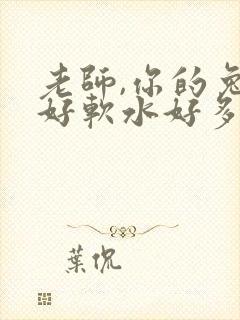 老師,你的兔
好軟水好多
葉侃